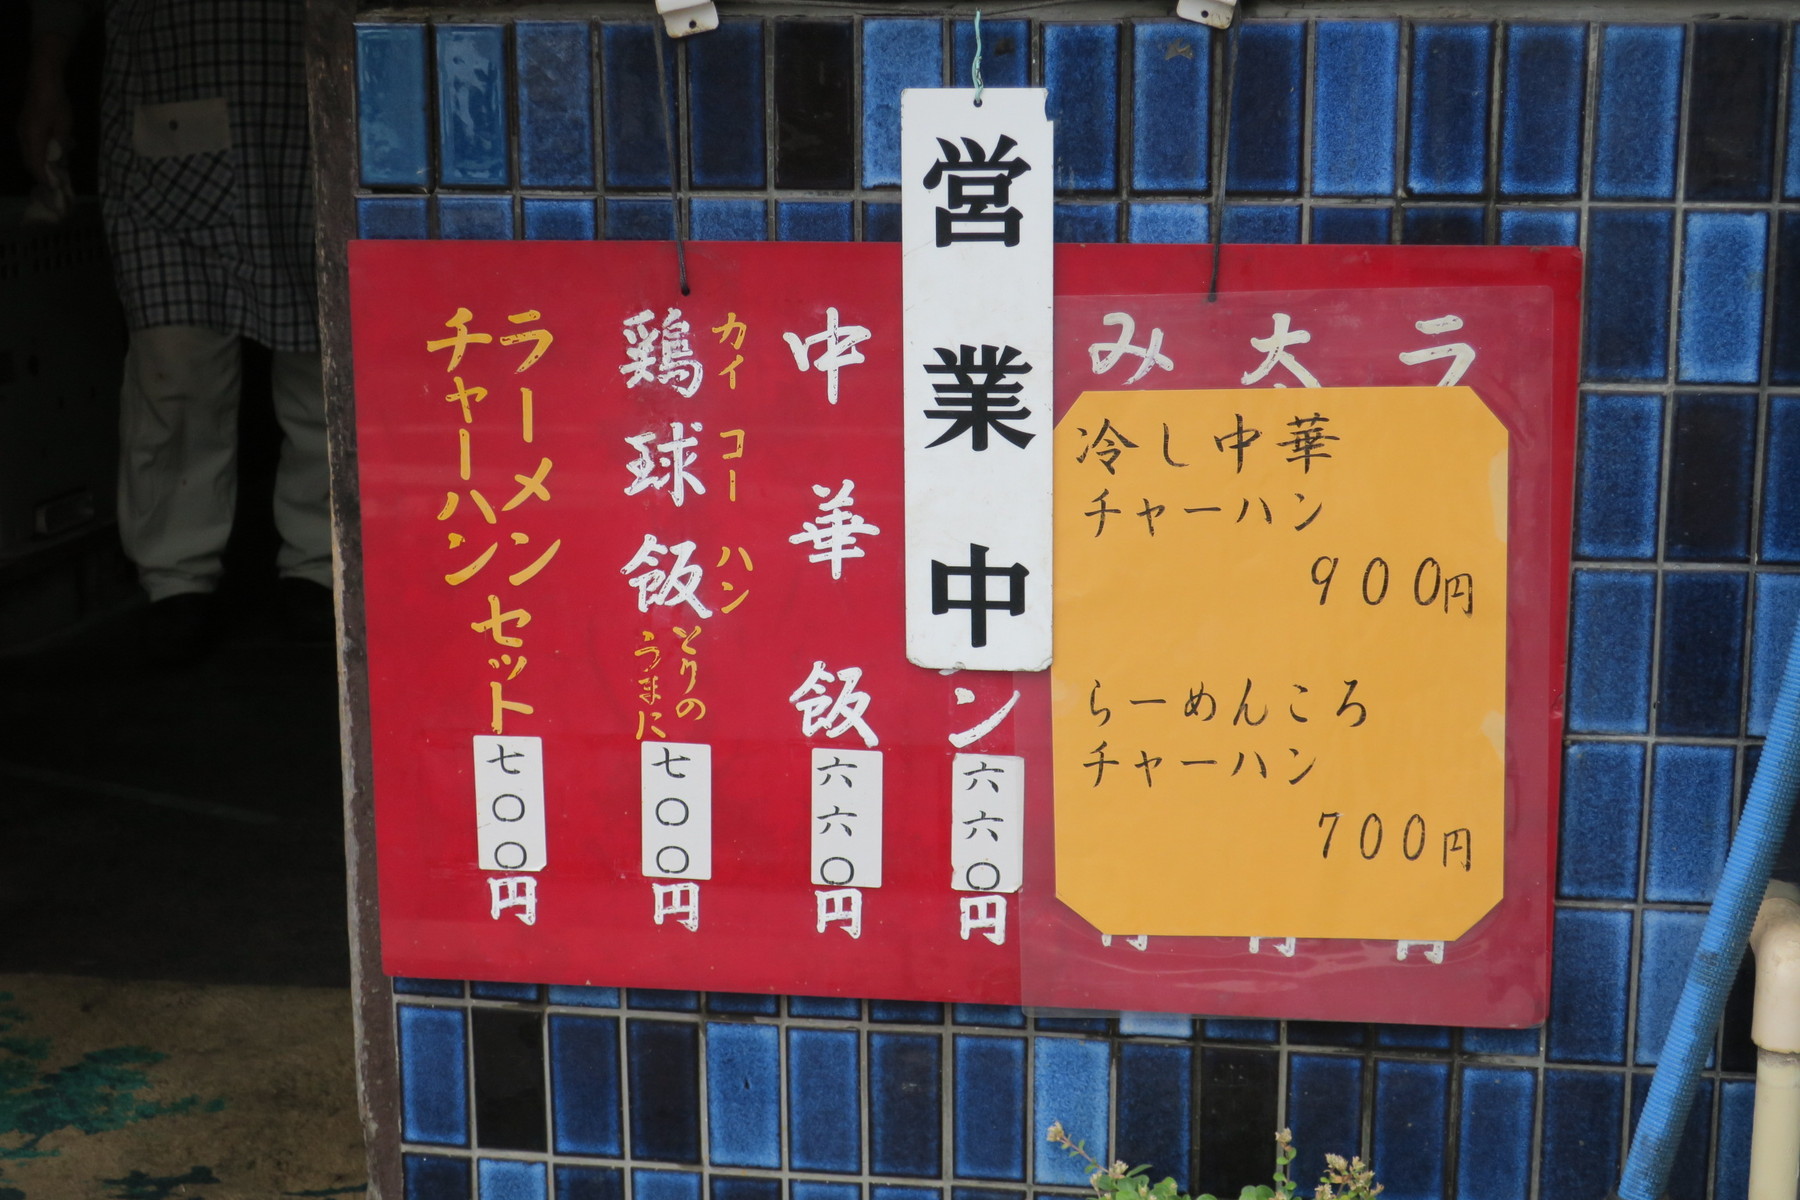 営業中
ラ
大
み
冷し中華
チャーハン
900円
らーめんころ
チャーハン
700円
ン六六〇円
中華飯六六〇円
カイコーハン
鶏球飯
とりの
うまに
七〇〇円
ラーメン
チャーハン
セット七〇〇円